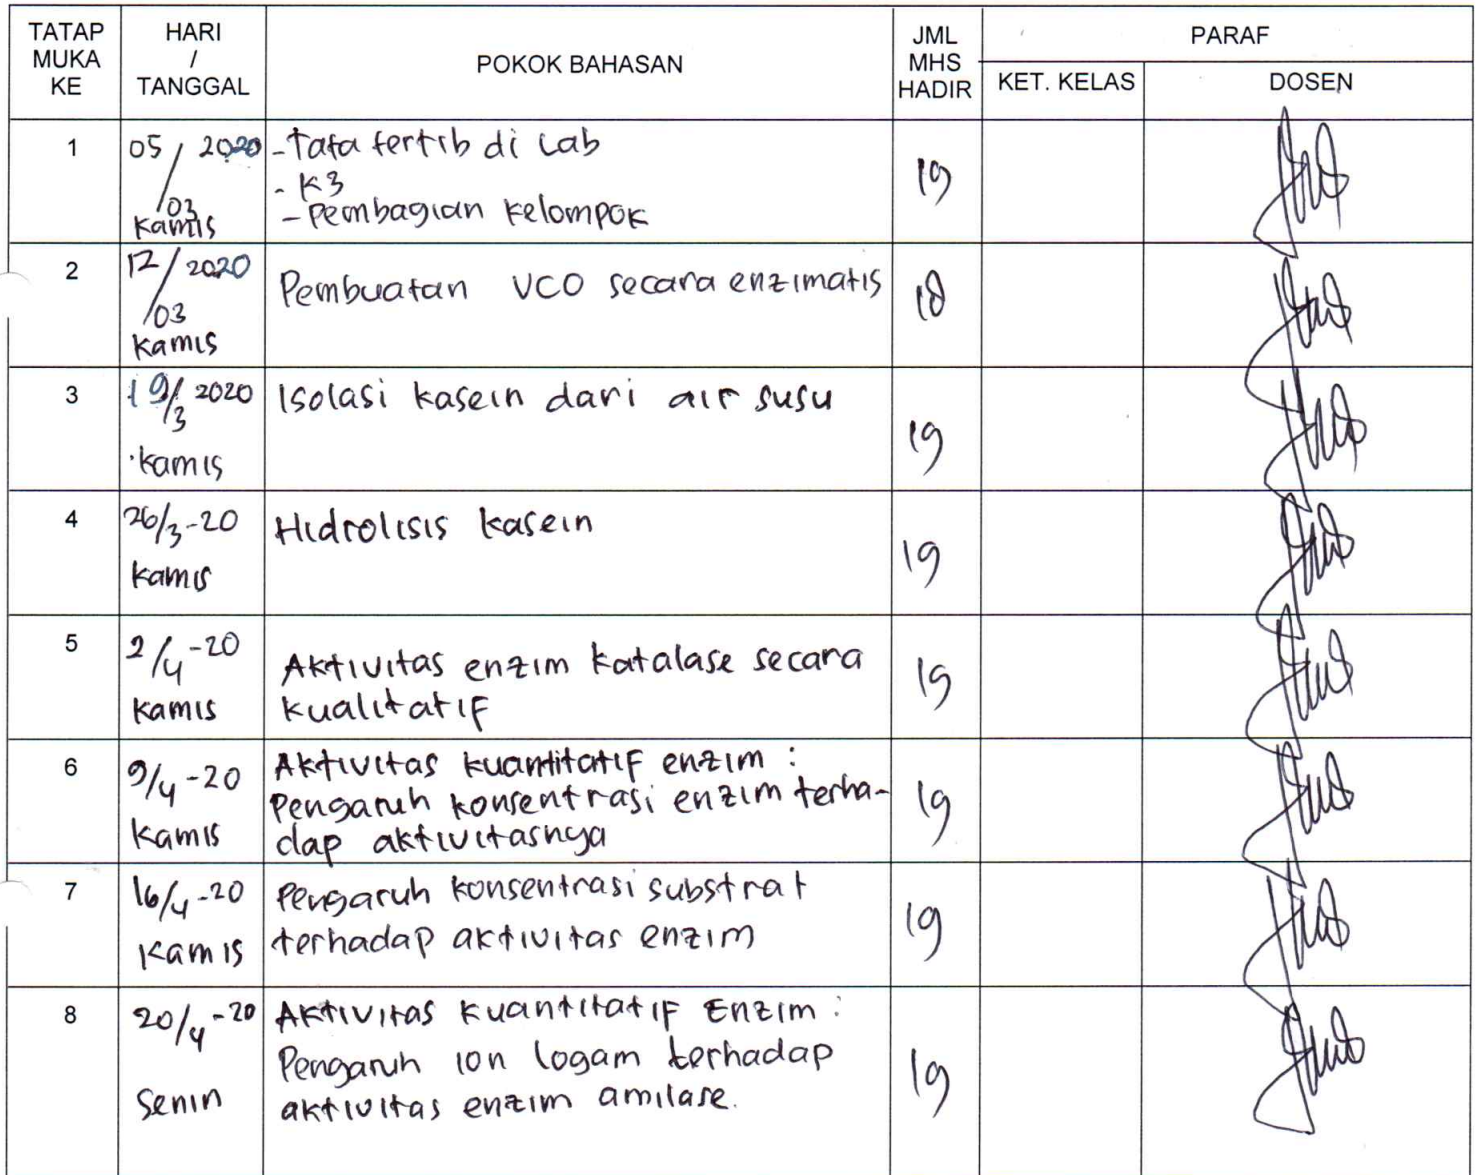 TATAP MUKA KE
HARI / TANGGAL
POKOK BAHASAN
JML MHS HADIR
PARAF
KET. KELAS
DOSEN
1
05/03 2020
Kamis
- Tata tertib di Lab
- K3
- Pembagian kelompok
19
2
12/03 2020
Kamis
Pembuatan VCO secara enzimatis
18
3
19/3 2020
Kamis
Isolasi kasein dari air susu
19
4
26/3-20
Kamis
Hidrolisis kasein
19
5
2/4-20
Kamis
Aktivitas enzim katalase secara
kualitatif
19
6
9/4-20
Kamis
Aktivitas kuantitatif enzim :
Pengaruh konsentrasi enzim terha-
dap aktivitasnya
19
7
16/4-20
Kamis
Pengaruh konsentrasi substrat
terhadap aktivitas enzim
19
8
20/4-20
Senin
Aktivitas kuantitatif Enzim :
Pengaruh ion logam terhadap
aktivitas enzim amilase.
19